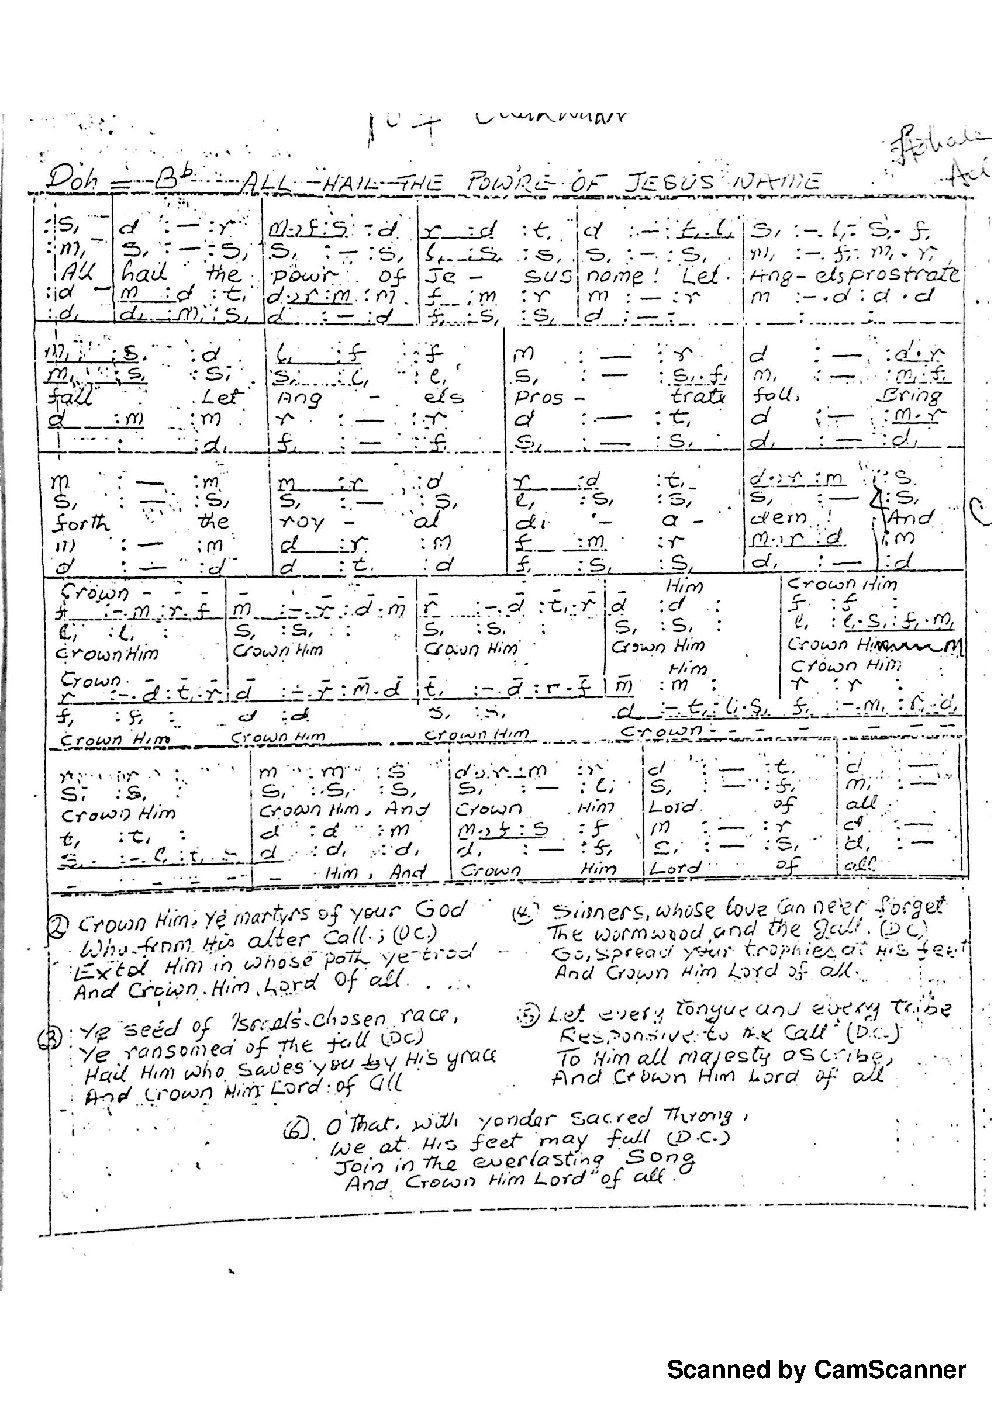 Doh = Bb ALL HAIL THE POWRE OF JESUS NAME
:s, | d :— :r | m.f:s :d | r :d :t, | d :— :t,.l, | s, :-.l,:s,.f,
:m, | s, :— :s, | s, :— :s, | l, :s, :s, | s, :— :s, | m, :-.f,:m,.r,
All hail the powr of Je - sus name! Let Ang-els prostrate
:d | m :d :t, | d.r:m :m | f :m :r | m :— :r | m :-.d :d.d
:d, | d, :m, :s, | d :— :d | f, :s, :s, | d :— : | : :
m, :s, :d | l, :f :f | m :— :r | d :— :d.r
m, :s, :s, | s, :l, :l, | s, :— :s,.f, | m, :— :m,.f,
fall Let Ang - els Pros - trate fall, Bring
d :m :m | r :— :r | d :— :t, | d :— :m.r
: :d, | f, :— :f, | s, :— :s, | d, :— :d,
m :— :m | m :r :d | r :d :t, | d.r:m :s
s, :— :s, | s, :— :s, | l, :s, :s, | s, :— :s,
forth the roy - al di - a - dem! And
m :— :m | d :r :m | f :m :r | m.r:d :m
d :— :d | d :t, :d | f, :s, :s, | d, :— :d
Crown - - - - - - - - - - - - Him Crown Him
f :-.m:r.f | m :-.r:d.m | r :-.d:t,.r | d :d : | f :f :
l, :l, : | s, :s, : | s, :s, : | s, :s, : | l, :l,.s,:f,.m,
Crown Him Crown Him Crown Him Crown Him Crown Him
Crown - - - - - - - - - - Him Crown Him
r :-.d:t,.r | d :-.r:m.d | t, :-.d:r.f | m :m : | r :r :
f, :f, : | d :d | s, :s, | d :-.t,:l,.s, | f, :-.m,:r,.d,
Crown Him Crown Him Crown Him Crown - - - - - - -
r :r : | m :m :s | d.r:m :r | d :— :t, | d :—
s, :s, | s, :s, :s, | s, :— :l, | s, :— :f, | m, :—
Crown Him Crown Him, And Crown Him Lord of all
t, :t, : | d :d :m | m.f:s :f | m :— :r | d :—
s, :-.l,:t,.s, | d :d, :d, | d, :— :f, | s, :— :s, | d, :—
- - - - - Him, And Crown Him Lord of all
(2) Crown Him, ye martyrs of your God
Who from His alter Call; (DC)
Extol Him in whose path ye trod
And Crown Him Lord Of all . . . .
(3) Ye seed of Israels chosen race,
Ye ransomed of the fall (DC)
Hail Him who saves you by His grace
And Crown Him Lord of all
(4) Sinners, whose love Can ne'er forget
The wormwood and the gall. (DC)
Go, spread your trophies at His feet
And Crown Him Lord of all.
(5) Let every tongue and every tribe
Responsive to the Call (D.C.)
To Him all majesty ascribe,
And Crown Him Lord of all
(6) O That with yonder sacred Throng,
We at His feet may fall (D.C.)
Join in the everlasting Song
And Crown Him Lord of all
Scanned by CamScanner